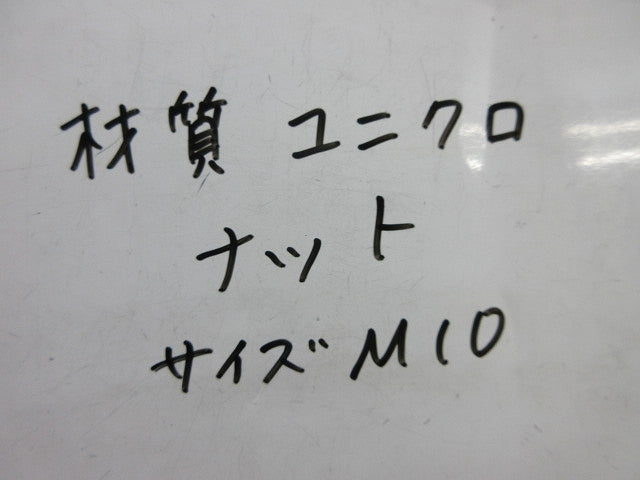 材質 ユニクロ
ナット
サイズ M10